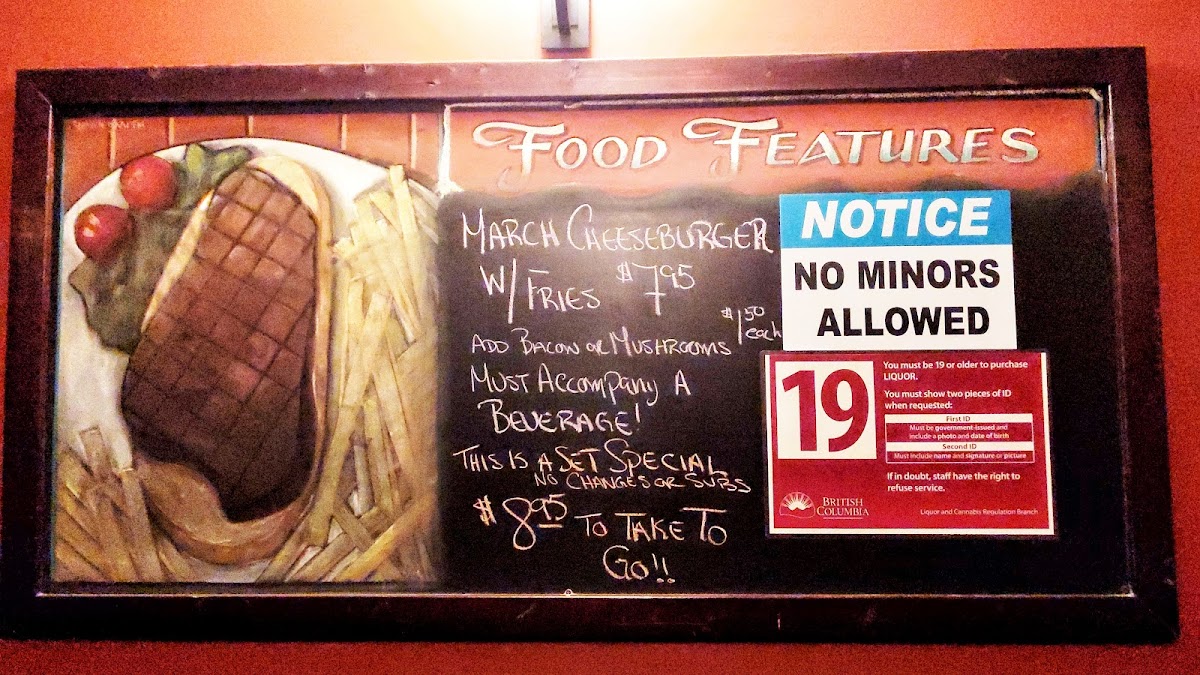 FOOD FEATURES
MARCH CHEESEBURGER
W/ FRIES $7.95
ADD BACON OR MUSHROOMS $1.50 each
MUST ACCOMPANY A
BEVERAGE!
THIS IS A SET SPECIAL
NO CHANGES OR SUBS
$8.95 TO TAKE TO
GO!!
NOTICE
NO MINORS
ALLOWED
19
You must be 19 or older to purchase
LIQUOR.
You must show two pieces of ID
when requested:
First ID
Must be government-issued and
include a photo and date of birth
Second ID
Must include name and signature or picture
If in doubt, staff have the right to
refuse service.
BRITISH
COLUMBIA
Liquor and Cannabis Regulation Branch